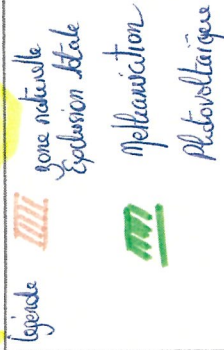 légende
zone naturelle
Exclusion totale
Méthanisation
Photovoltaïque